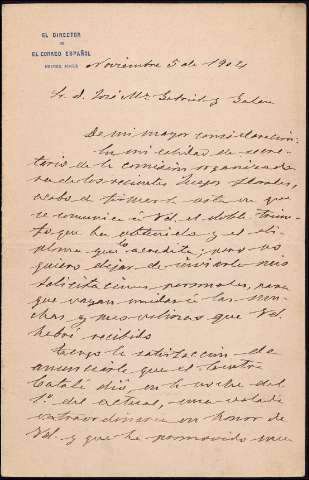 EL DIRECTOR
DE
EL CORREO ESPAÑOL
BUENOS AIRES
Noviembre 5 de 1904
Sr. D. José Mª Gabriel y Galan
De mi mayor consideracion:
En mi calidad de secre-
tario de la comision organizado-
ra de los recientes Juegos florales,
acabo de firmar la nota en que
se comunica á Vd. el doble triun-
fo que ha obtenido y el di-
ploma que lo acredita; pero no
quiero dejar de enviarle mis
felicitaciones personales, para
que vayan unidas á las mu-
chas y mas valiosas que Vd.
habrá recibido
Tengo la satisfaccion de
anunciarle que el Centro
Catalá dió, en la noche del
1º del actual, una velada
extraordinaria en honor de
Vd. y que ha promovido una